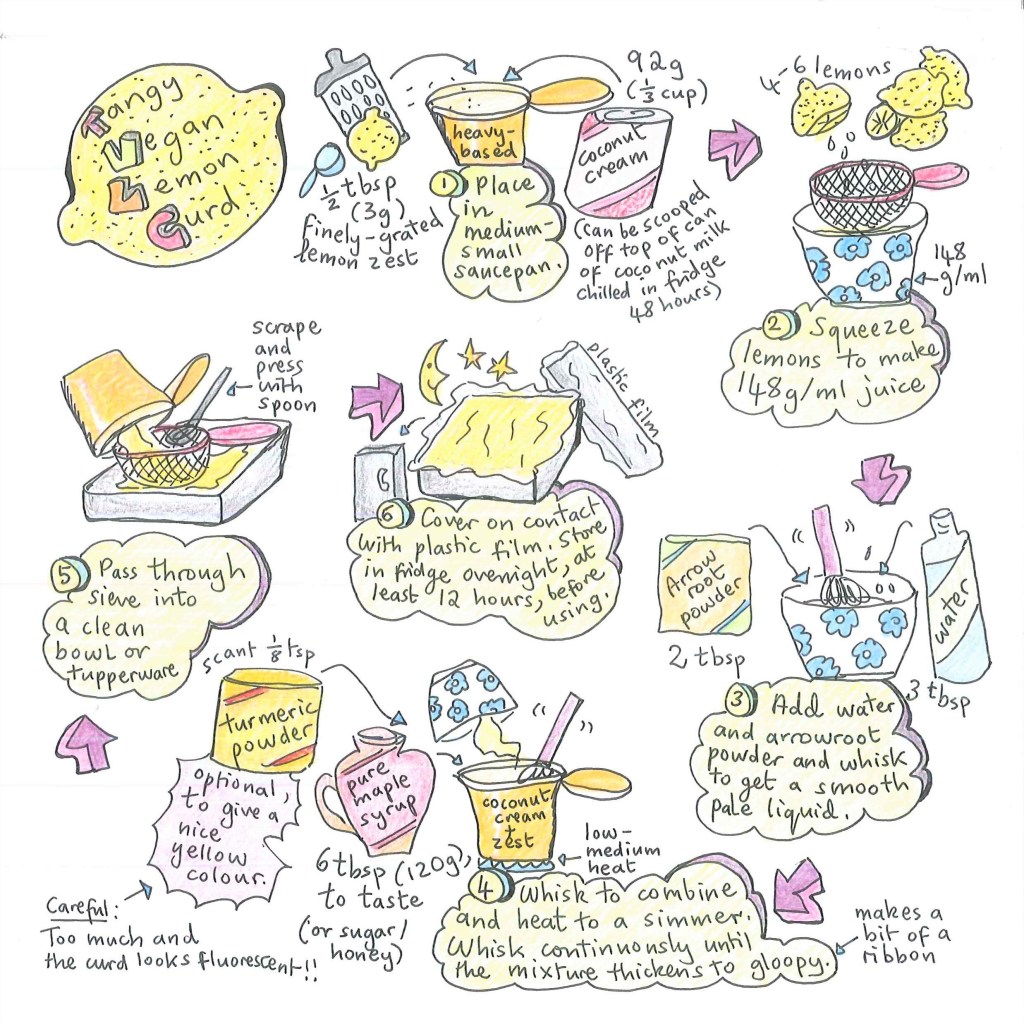 Tangy
Vegan
Lemon
Curd
1/2 tbsp
(3g)
Finely-grated
lemon zest
heavy-
based
92g
(1/3 cup)
coconut
cream
(can be scooped
off top of can
of coconut milk
chilled in fridge
48 hours)
① Place
in
medium-
small
saucepan.
4-6 lemons
148
g/ml
② Squeeze
lemons to make
148g/ml juice
Arrow
root
powder
2 tbsp
water
3 tbsp
③ Add water
and arrowroot
powder and whisk
to get a smooth
pale liquid.
scant 1/8 tsp
turmeric
powder
optional,
to give a
nice
yellow
colour.
Careful:
Too much and
the curd looks fluorescent!!
pure
maple
syrup
6 tbsp (120g)
to taste
(or sugar/
honey)
coconut
cream
+
zest
low-
medium
heat
④ Whisk to combine
and heat to a simmer.
Whisk continuously until
the mixture thickens to gloopy.
makes a
bit of a
ribbon
scrape
and
press
with
spoon
⑤ Pass through
sieve into
a clean
bowl or
tupperware
plastic film
⑥ Cover on contact
with plastic film. Store
in fridge overnight, at
least 12 hours, before
using.